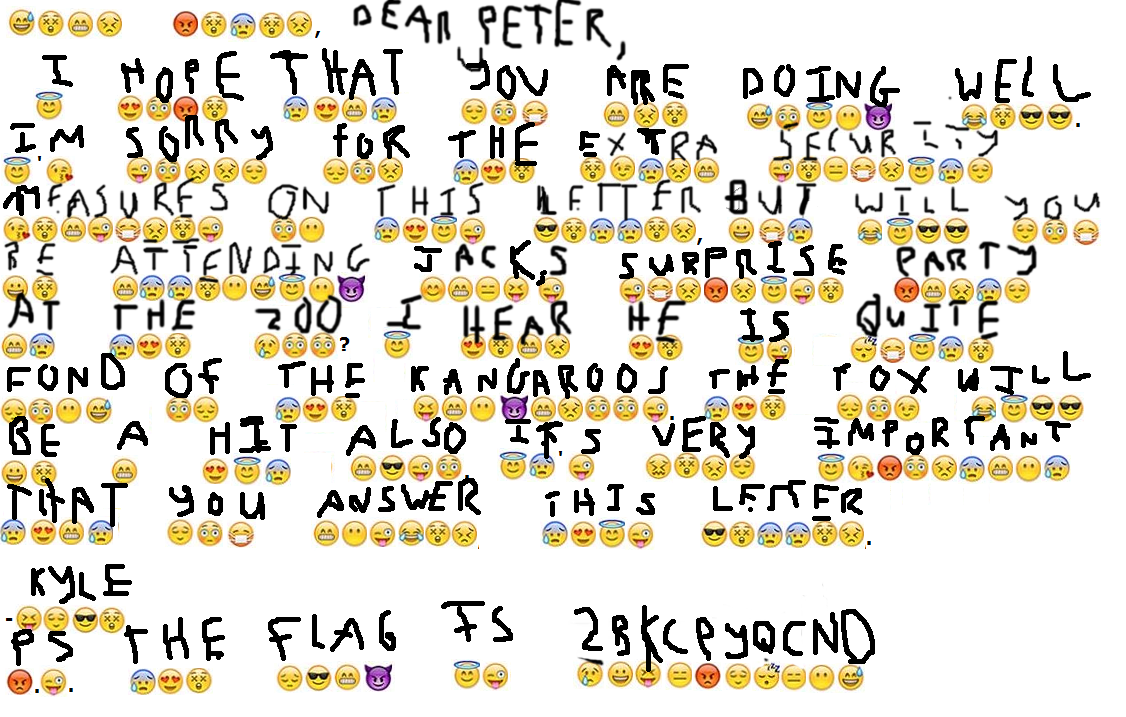 DEAR PETER,
I HOPE THAT YOU ARE DOING WELL.
I'M SORRY fOR THE EXTRA SECURITY
MEASURES ON THIS LETTER, BUT WILL YOU
BE ATTENDING JACK'S SURPRISE PARTY
AT THE ZOO? I HEAR HE IS QUITE
FOND Of THE KANGAROOS THE FOX WILL
BE A HIT ALSO. IT'S VERY IMPORTANT
THAT YOU ANSWER THIS LETTER.
-KYLE
P.S. THE FLAG IS ZBKCPYQCND